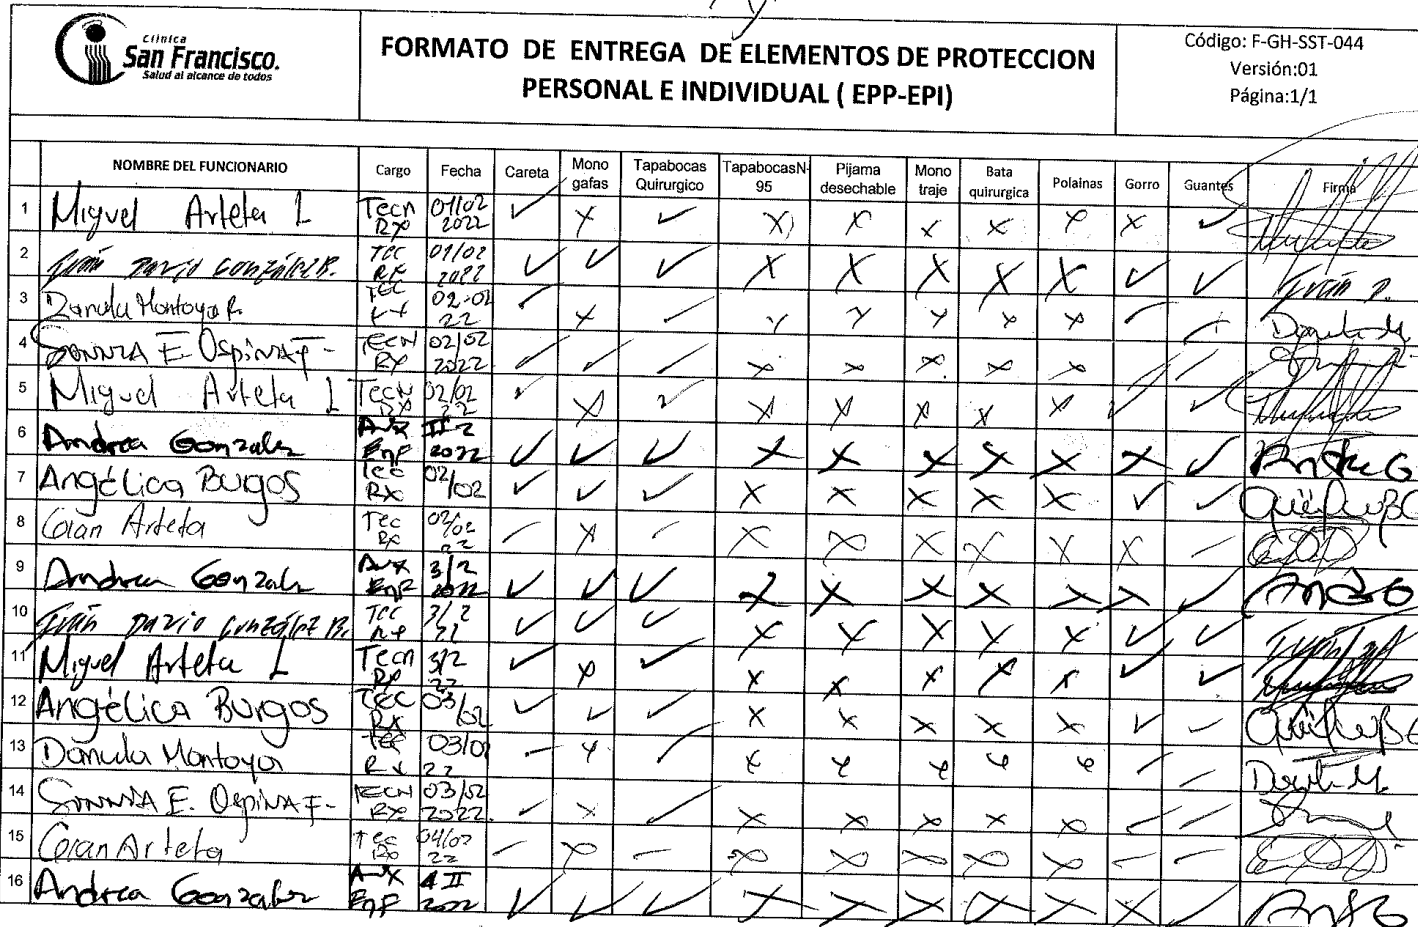 Clínica
San Francisco.
Salud al alcance de todos
FORMATO DE ENTREGA DE ELEMENTOS DE PROTECCION
PERSONAL E INDIVIDUAL ( EPP-EPI)
Código: F-GH-SST-044
Versión:01
Página:1/1
NOMBRE DEL FUNCIONARIO Cargo Fecha Careta Mono gafas Tapabocas Quirurgico TapabocasN-95 Pijama desechable Mono traje Bata quirurgica Polainas Gorro Guantes Firma
1 Miguel Arteta L Tecn RX 01/02 2022 ✓ X ✓ X X X X X X ✓
2 Iván Darío González B. Tec RX 01/02 2022 ✓ ✓ ✓ X X X X X ✓ ✓ Iván D.
3 Montoya R. Tec 02-02 22 ✓ X ✓ X X X X X ✓ ✓
4 E. Ospina F. Tecn RX 02/02 2022 ✓ ✓ ✓ X X X X X ✓ ✓
5 Miguel Arteta L Tecn RX 02/02 22 ✓ X ✓ X X X X X ✓ ✓
6 Andrea Gonzalez Aux Enf II 2 2022 ✓ ✓ ✓ X X X X X X ✓
7 Angélica Burgos Tec RX 02/02 ✓ ✓ ✓ X X X X X ✓ ✓
8 Arteta Tec RX 02/02 22 ✓ X ✓ X X X X X X ✓
9 Andrea Gonzalez Aux Enf 3/2 2022 ✓ ✓ ✓ X X X X X X ✓
10 Iván Darío González B. Tec RX 3/2 ✓ ✓ ✓ X X X X X ✓ ✓
11 Miguel Arteta L Tecn RX 3/2 22 ✓ X ✓ X X X X X ✓ ✓
12 Angélica Burgos Tec RX 03/02 ✓ ✓ ✓ X X X X X ✓ ✓
13 Montoya Tec RX 03/02 22 ✓ X ✓ X X X X X ✓ ✓
14 E. Ospina F. Tecn RX 03/02 2022 ✓ X ✓ X X X X X ✓ ✓
15 Arteta Tec RX 04/02 22 ✓ X ✓ X X X X X ✓ ✓
16 Andrea Gonzalez Aux Enf 4 II 2022 ✓ ✓ ✓ X X X X X X ✓